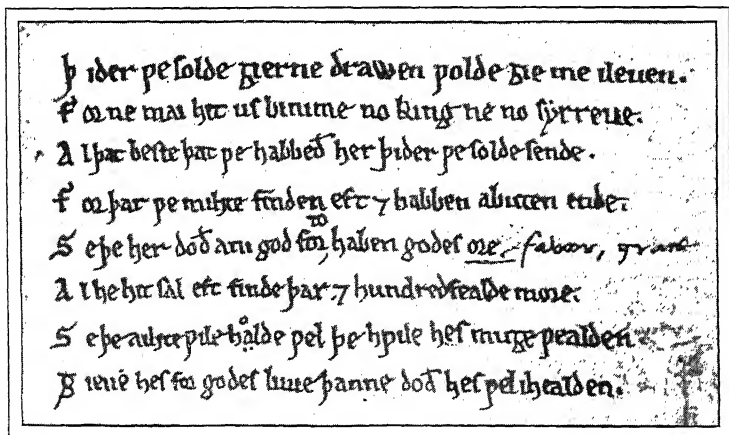 Þider ƿe ſolde gierne drawen ƿolde gie me ileuen.
For ne mai hit uſ binime no king ne no ſyrreue.
Al þat beſte þat ƿe habbeð her þider ƿe ſolde ſende.
For þar ƿe mihte finden eft ⁊ habben abuten ende.
Seþe her doð ani god for to haben godeſ ore. favor, grace
Al he hit ſal eft finde þar ⁊ hundredfealde more.
Seþe auhte ƿile holde ƿel þe hƿile heſ muge ƿealden
Gieue heſ for godeſ luue þanne doð heſ ƿel ihealden.